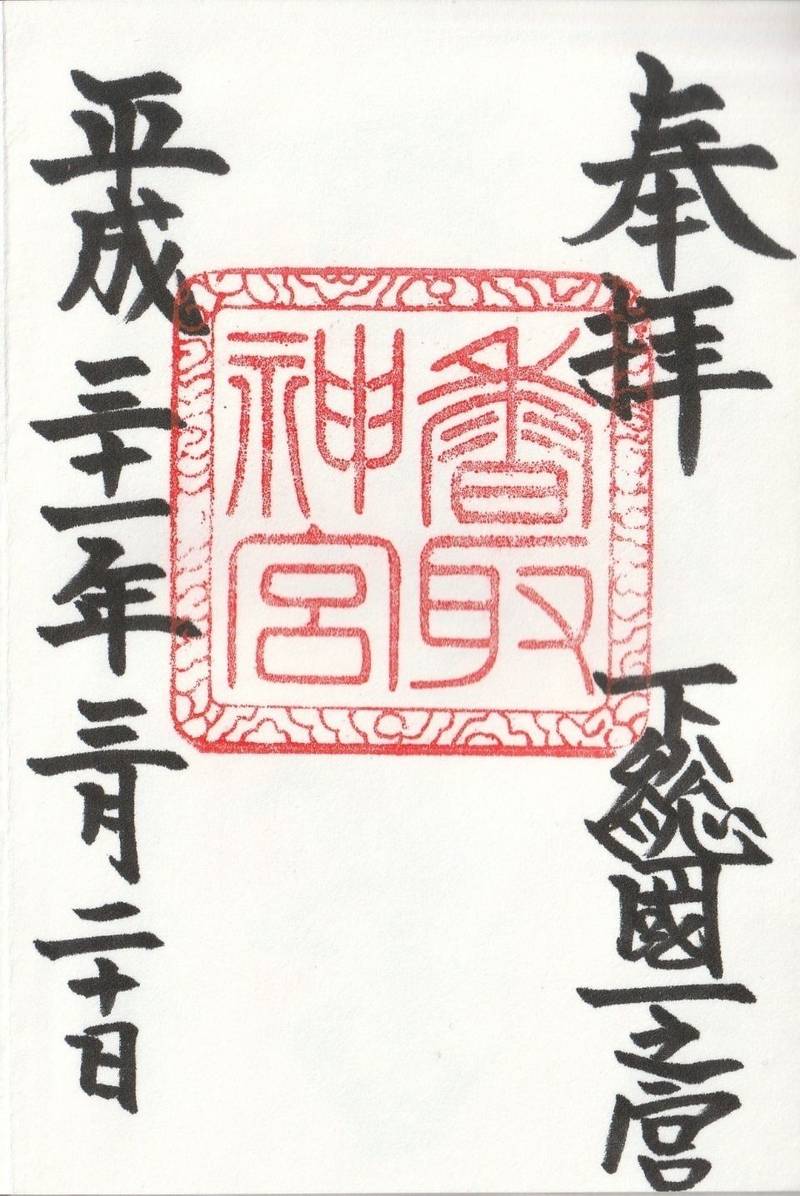 奉拝 下総國一之宮
香取
神宮
平成三十一年三月二十日